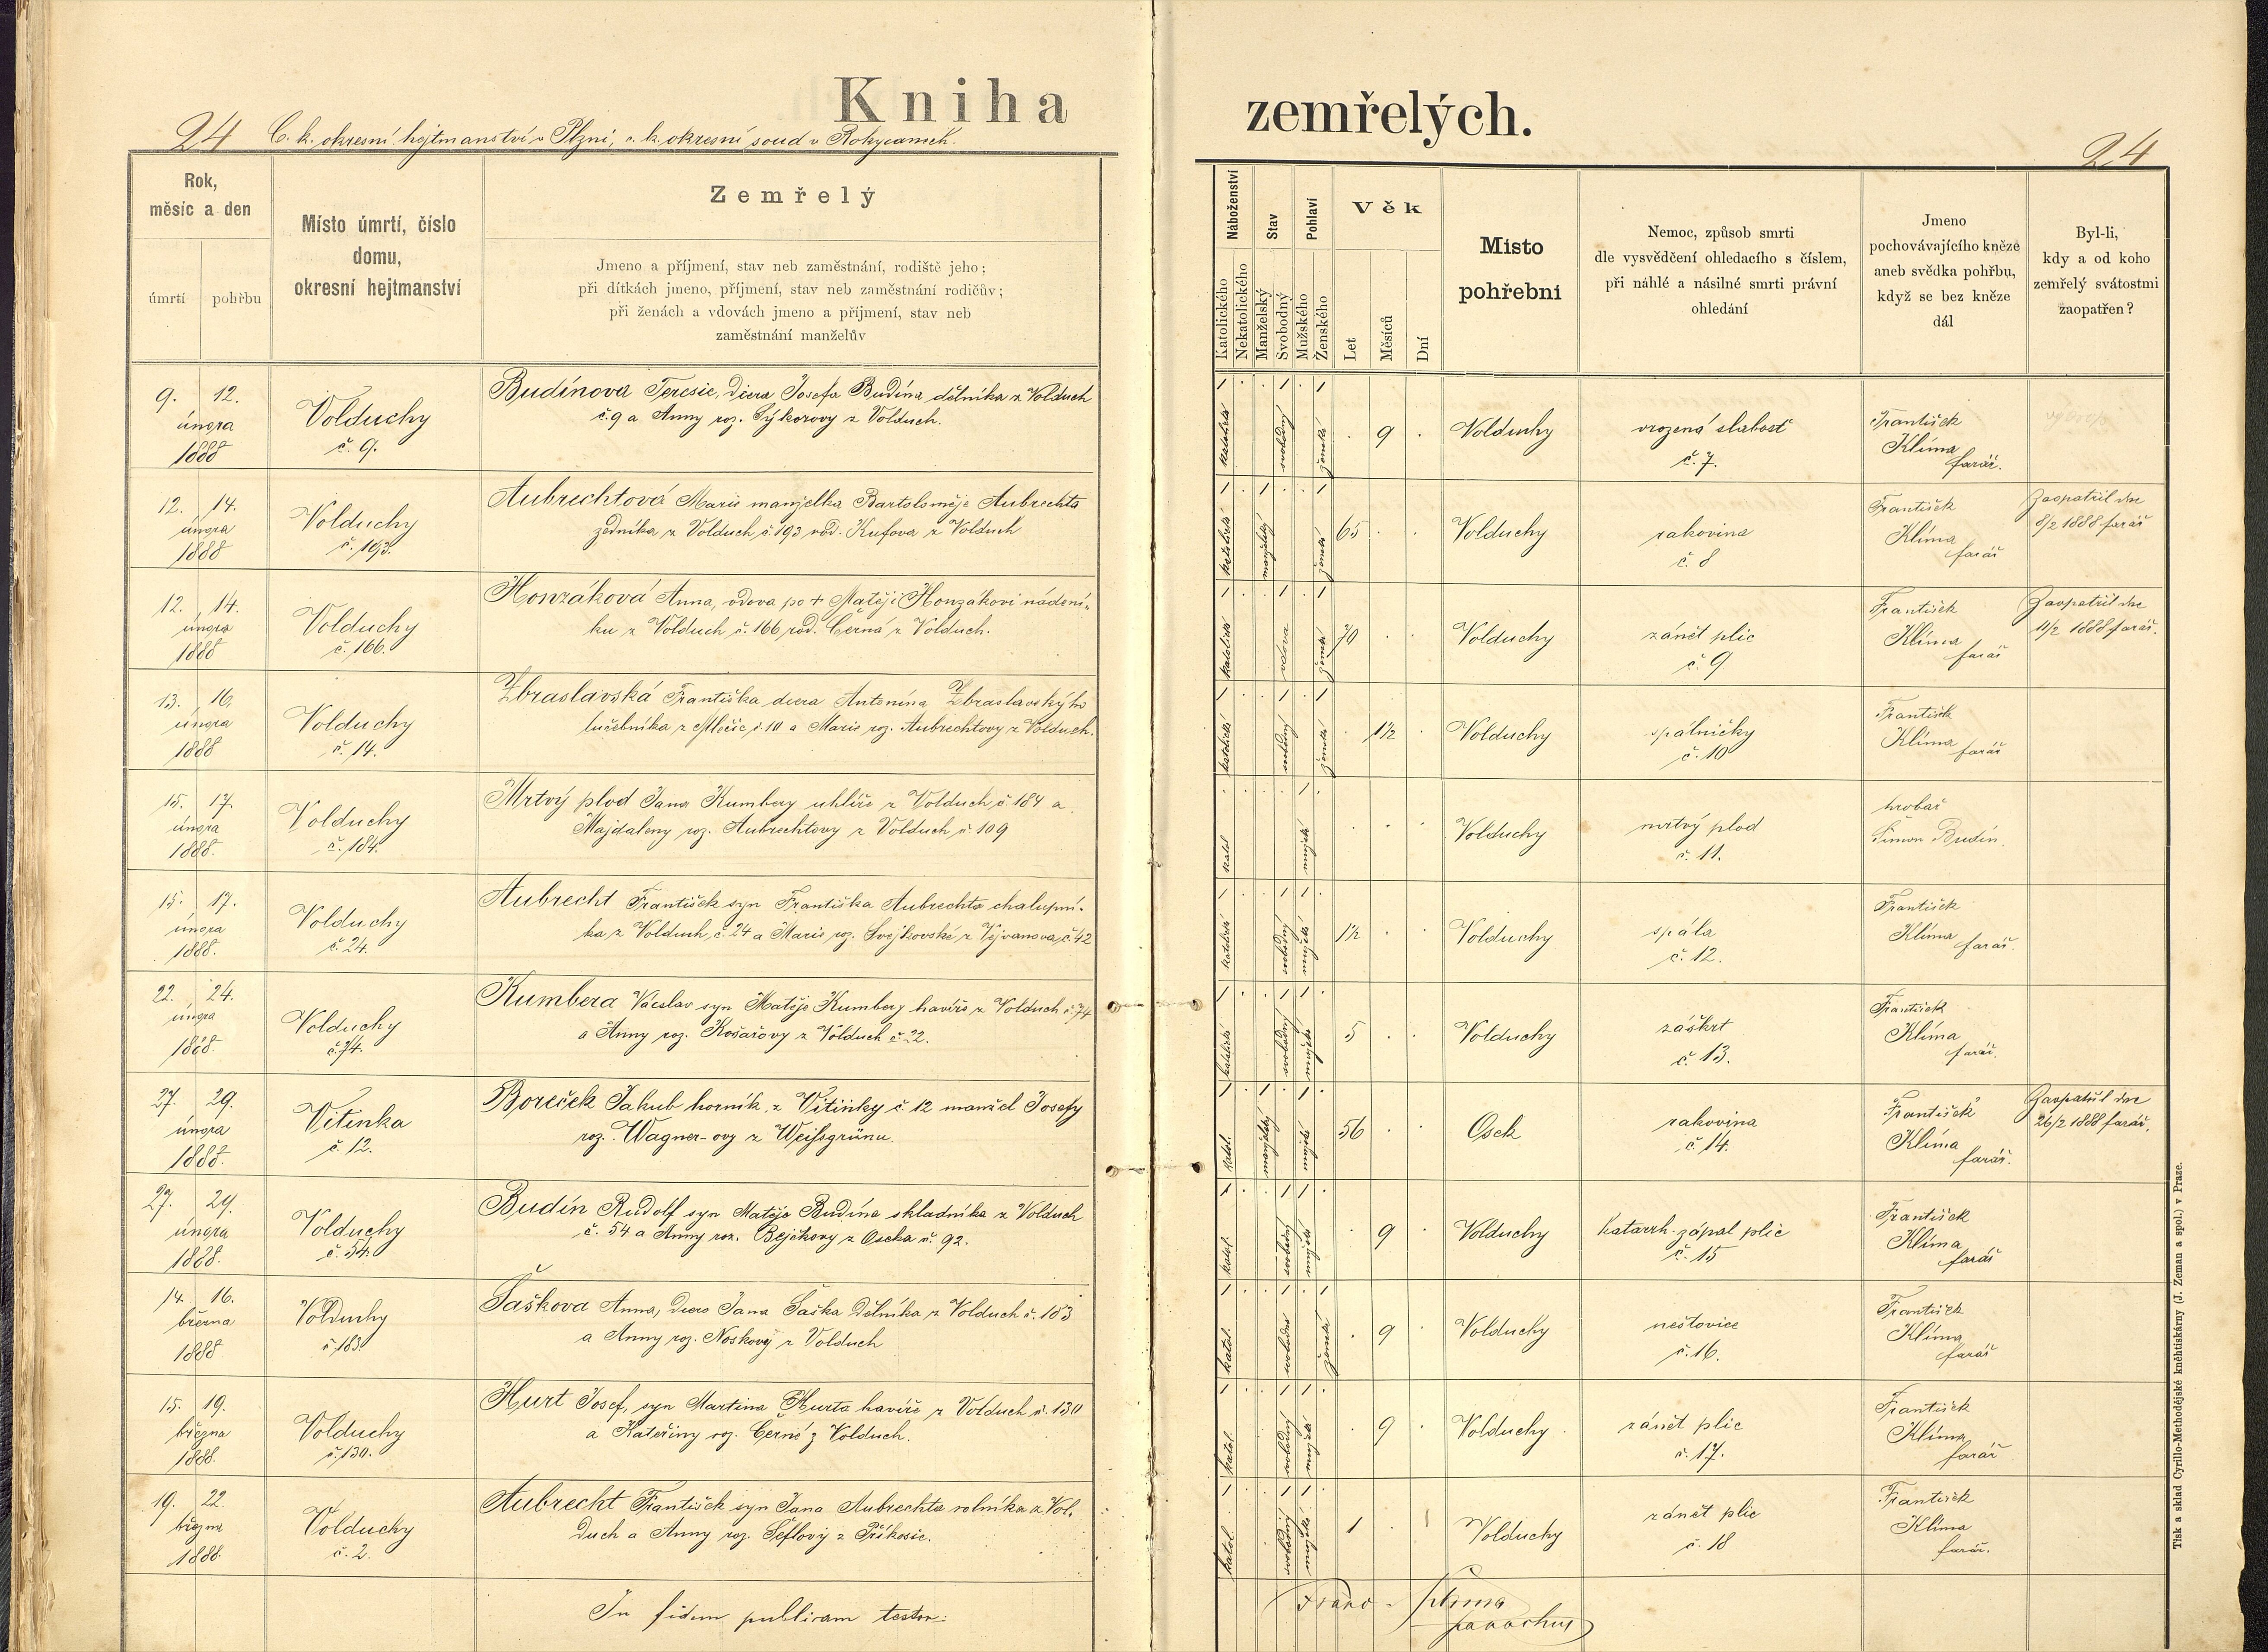 Kniha zemřelých.
24 C. k. okresní hejtmanství v Plzni, c. k. okresní soud v Rokycanech. 24
Rok,
měsíc a den
úmrtí
pohřbu
Místo úmrtí, číslo
domu,
okresní hejtmanství
Zemřelý
Jmeno a příjmení, stav neb zaměstnání, rodiště jeho;
při dítkách jmeno, příjmení, stav neb zaměstnání rodičův;
při ženách a vdovách jmeno a příjmení, stav neb
zaměstnání manželův
Náboženství
Katolického
Nekatolického
Stav
Manželský
Svobodný
Pohlaví
Mužského
Ženského
Věk
Let
Měsíců
Dní
Misto
pohřebni
Nemoc, způsob smrti
dle vysvědčení ohledacího s číslem,
při náhlé a násilné smrti právní
ohledání
Jmeno
pochovávajícího kněze
aneb svědka pohřbu,
když se bez kněze
dál
Byl-li,
kdy a od koho
zemřelý svátostmi
zaopatřen?
9. 12.
února
1888
Volduchy
č. 9.
Budínova Teresie, dcera Josefa Budína dělníka z Volduch
č. 9 a Anny roz. Sýkorovy z Volduch.
katolické svobodný ženské 9 Volduchy
vrozená slabost
č. 7.
František
Klíma
farář.
12. 14.
února
1888
Volduchy
č. 193.
Aubrechtová Marie manželka Bartoloměje Aubrechta
zedníka z Volduch č. 193 rod. Kufova z Volduch
katolické manželský ženské 65 Volduchy
rakovina
č. 8
František
Klíma
farář
Zaopatřil dne
8/2 1888 farář
12. 14.
února
1888
Volduchy
č. 166.
Honzáková Anna, vdova po + Matěji Honzákovi nádení-
ku z Volduch č. 166 rod. Černá z Volduch.
katolické vdova ženské 70 Volduchy
zánět plic
č. 9
František
Klíma
farář
Zaopatřil dne
11/2 1888 farář.
13. 16.
února
1888
Volduchy
č. 14.
Zbraslavská Františka dcera Antonína Zbraslavského
lučebníka z Mlečic č. 10 a Marie roz. Aubrechtovy z Volduch.
katolické svobodný ženské 1½ Volduchy
spálničky
č. 10
František
Klíma
farář
15. 17.
února
1888.
Volduchy
č. 184.
Mrtvý plod Jana Kumbery uhlíře z Volduch č 184 a
Majdaleny roz. Aubrechtovy z Volduch č. 109
katol mužské Volduchy
mrtvý plod
č. 11.
hrobař
Šimon Budín.
15. 17.
února
1888.
Volduchy
č. 24.
Aubrecht František syn Františka Aubrechta chalupní-
ka z Volduch, č. 24 a Marie roz. Švejkovské z Vejvanova, č. 42
katolické svobodný mužské 1½ Volduchy
spála
č. 12.
František
Klíma
farář.
22. 24.
února
1888.
Volduchy
č. 74.
Kumbera Václav syn Matěje Kumbery havíře z Volduch č. 74
a Anny roz. Košařovy z Volduch č. 22.
katolické svobodný mužské 5 Volduchy
záškrt
č. 13.
František
Klíma
farář.
27. 29.
února
1888.
Vitinka
č. 12.
Boreček Jakub horník, z Vitinky č. 12 manžel Josefy
roz. Wagner-ovy z Weissgrünu.
katol. manželský mužské 56 Osek
rakovina
č. 14.
František
Klíma
farář.
Zaopatřil dne
26/2 1888 farář.
27. 29.
února
1888.
Volduchy
č. 54.
Budín Rudolf syn Matěje Budína skladníka z Volduch
č. 54 a Anny roz. Bejčkovy z Oseka č. 92.
katol. svobodný mužské 9 Volduchy
Katarrh. zápal plic
č. 15
František
Klíma
farář
14. 16.
března
1888
Volduchy
č. 183.
Šaškova Anna, dcera Jana Šaška dělníka z Volduch č. 183
a Anny roz. Noskovy z Volduch
katol. svobodné ženské 9 Volduchy
neštovice
č. 16.
František
Klíma
farář
15. 19.
března
1888.
Volduchy
č. 130.
Hurt Josef, syn Martina Hurta havíře z Volduch č. 130
a Kateřiny roz. Černé z Volduch.
katol. svobodný mužské 9 Volduchy
zánět plic
č. 17.
František
Klíma
farář
19. 22.
března
1888.
Volduchy
č. 2.
Aubrecht František syn Jana Aubrechta rolníka z Vol.
duch a Anny roz. Šeflovy z Příkosic.
katol. svobodný mužské 1 Volduchy
zánět plic
č. 18
František
Klíma
farář.
In fidem publicam testor:
Franc. Klima
parochus
Tisk a sklad Cyrillo-Methodějské kněhtiskárny (J. Zeman a spol.) v Praze.